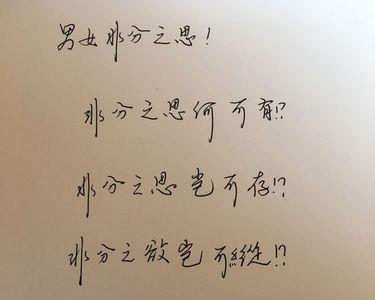 男女非分之思！
非分之思何可有!?
非分之思岂可存!?
非分之欲岂可縱!?